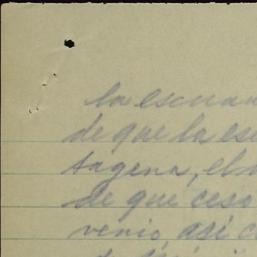 la escua
de que la es
tagena, el
de que ceso
venio, así c